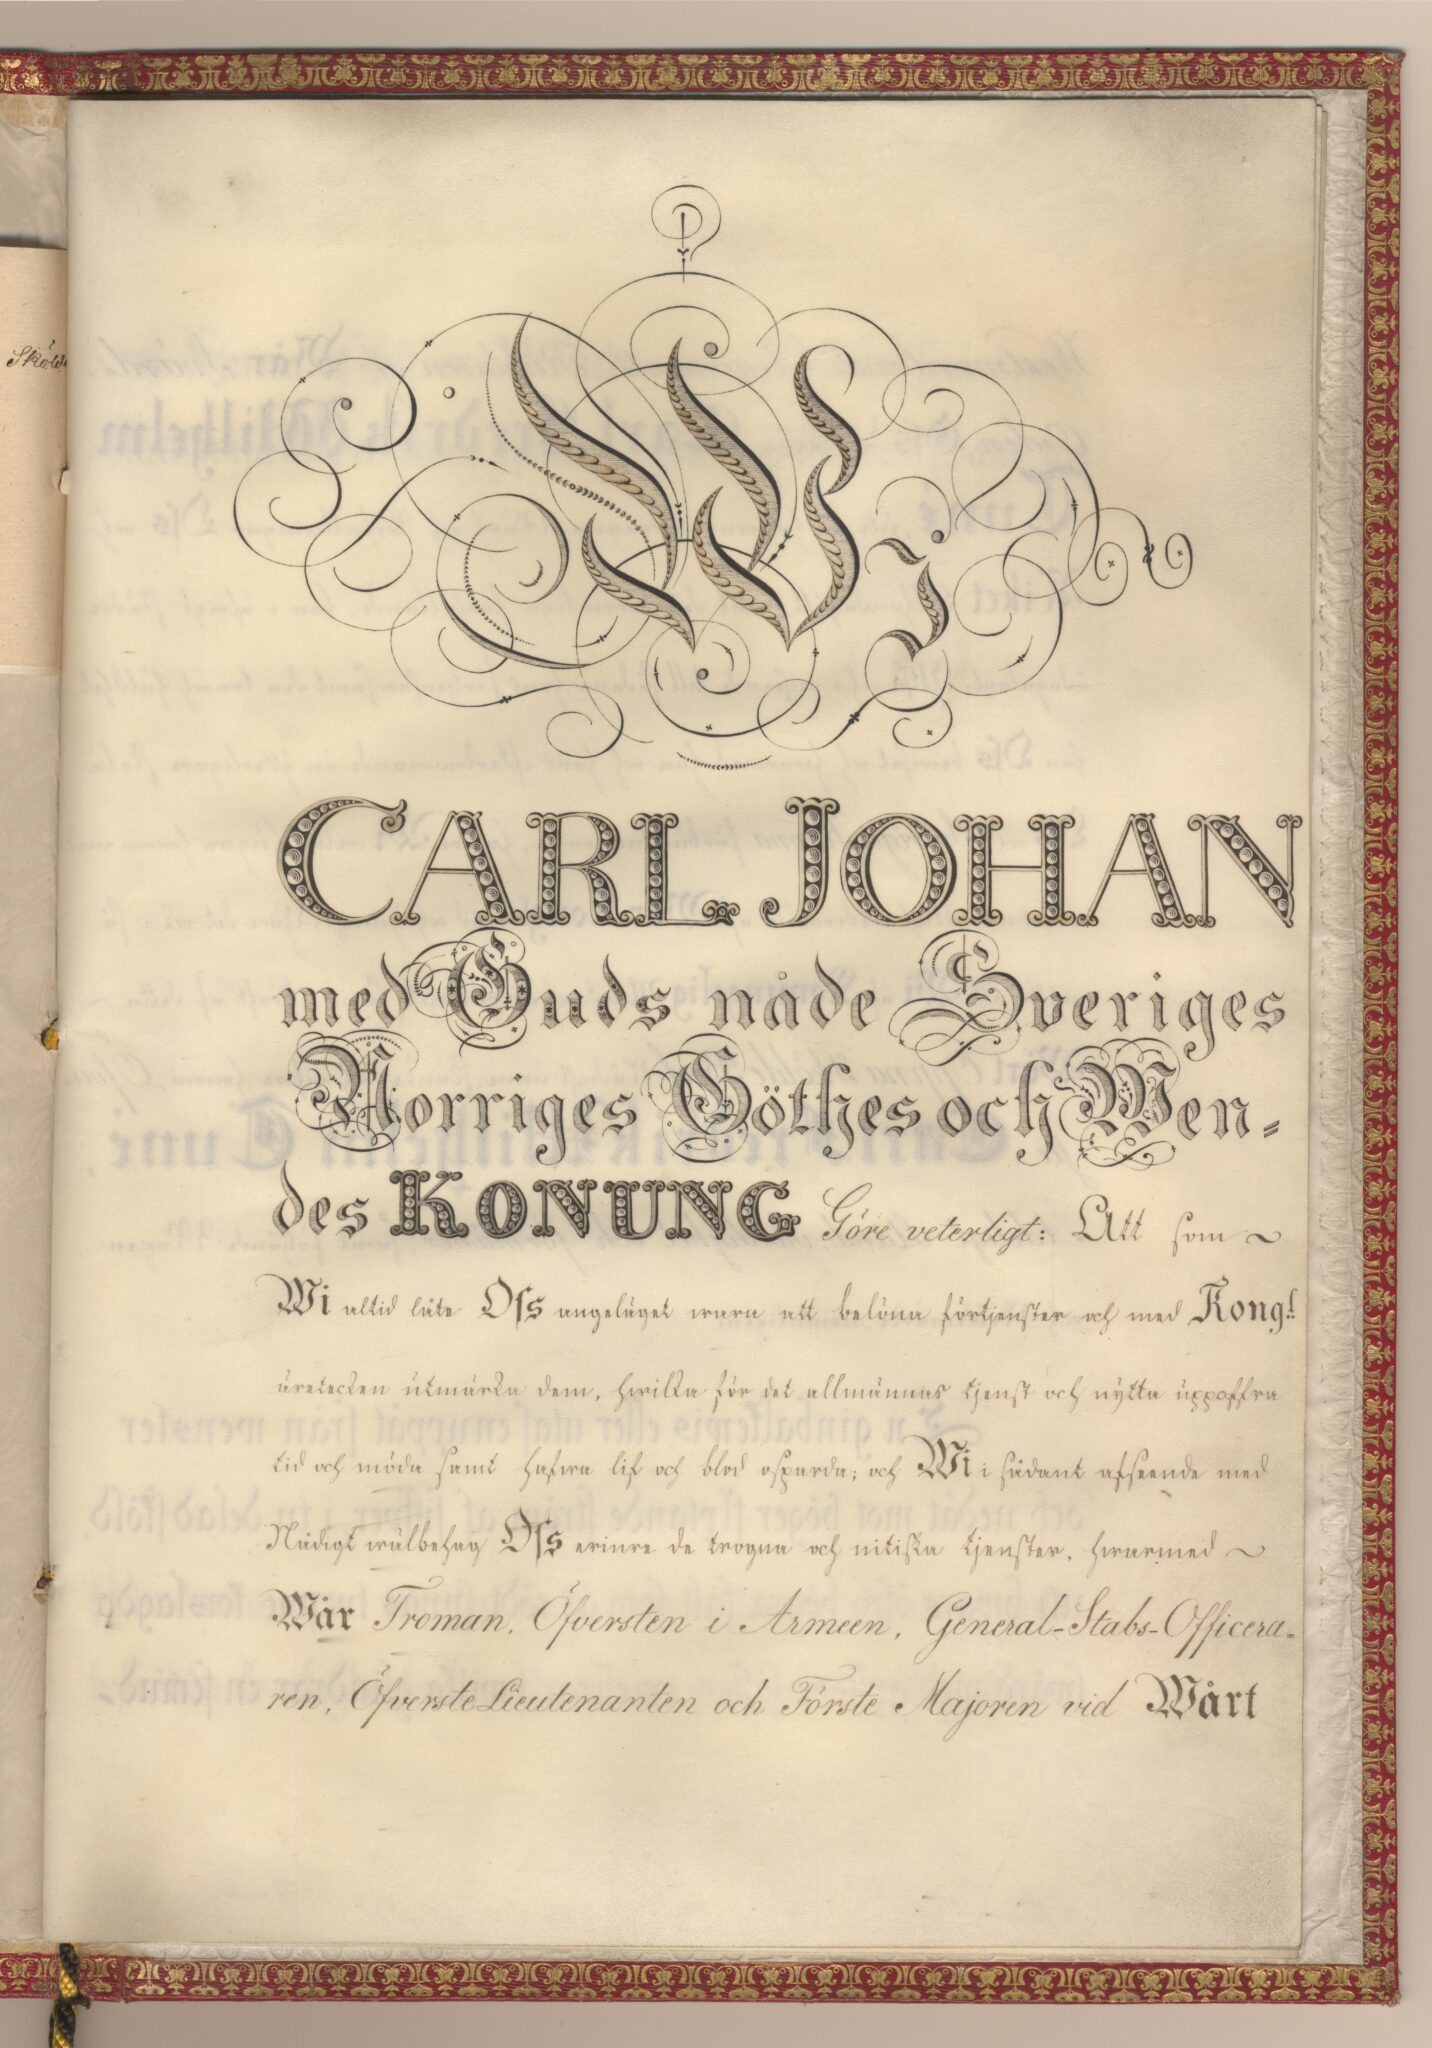 Sköld
Wi
CARL JOHAN
med Guds nåde Sveriges
Norriges Göthes och Wen=
des KONUNG Göre veterligt: Att som ~
Wi altid låte Oss angeläget wara att belöna förtjenster och med Kongl.
äretecken utmärka dem, hwilka för det allmännas tjenst och nytta uppoffra
tid och möda samt hafwa lif och blod osparda; och Wi i sådant afseende med
Nådigt wälbehag Oss erinre de trogna och nitiska tjenster, hwarmed ~
Wår Troman, Öfversten i Armeen, General-Stabs-Officera-
ren, Öfverste Lieutenanten och Förste Majoren vid Wårt